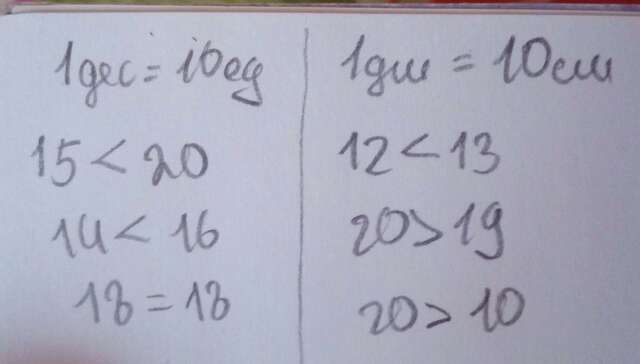 1дес = 10ед
15 < 20
14 < 16
18 = 18
1дм = 10см
12 < 13
20 > 19
20 > 10